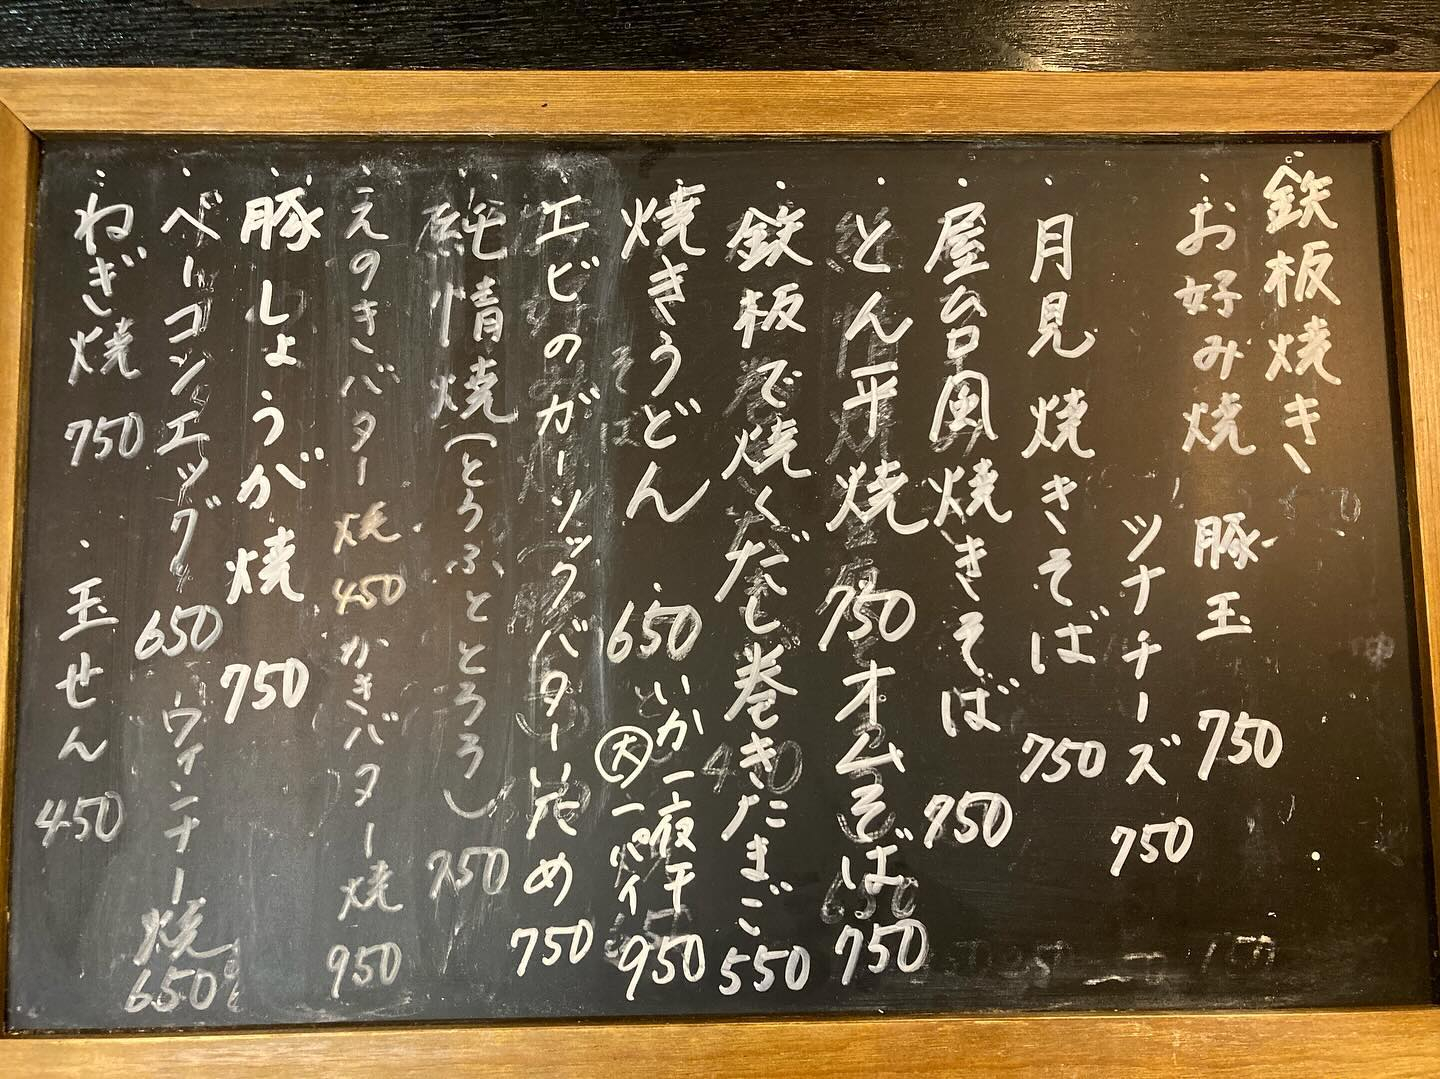 鉄板焼き
・お好み焼 豚玉 750
ツナチーズ 750
・月見焼きそば 750
・屋台風焼きそば 950
・とん平焼 750 オムそば 750
・鉄板で焼くだし巻きたまご 550
・焼きうどん 650 ・いか一夜干
大一パイ 950
・エビのガーリックバターいため 750
・純情焼(とうふととろろ) 750
・えのきバター焼 450 かきバター焼 950
・豚しょうが焼 750
・ベーコンエッグ 650 ウィンナー焼 650
・ねぎ焼 750 ・玉せん 450